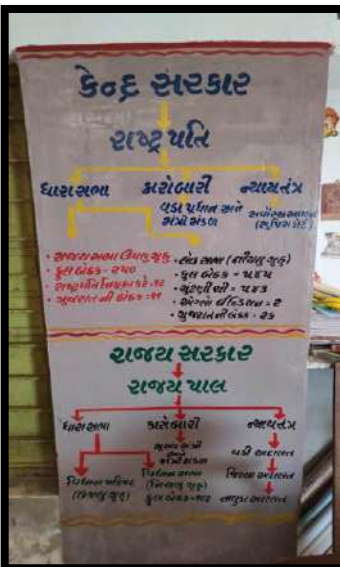 કેન્દ્ર સરકાર
રાષ્ટ્રપતિ
ધારાસભા કારોબારી ન્યાયતંત્ર
વડા પ્રધાન અને
મંત્રી મંડળ
સર્વોચ્ચ અદાલત
(સુપ્રિમ કોર્ટ)
• રાજ્ય સભા ઉપલુ ગૃહ
• કુલ બેઠક = ૨૫૦
• રાષ્ટ્રપતિ નિમણુક કરે = ૧૨
• ગુજરાત ની બેઠક = ૧૧
• લોક સભા (નીચલુ ગૃહ)
• કુલ બેઠક = ૫૪૫
• ચૂંટણી થી = ૫૪૩
• એંગ્લો ઈન્ડિયન = ૨
• ગુજરાત ની બેઠક = ૨૬
રાજ્ય સરકાર
રાજ્ય પાલ
ધારા સભા કારોબારી ન્યાયતંત્ર
મુખ્ય મંત્રી
અને
મંત્રી મંડળ
વડી અદાલત
જિલ્લા અદાલત
તાલુકા અદાલત
વિધાન પરિષદ
(ઉપલુ ગૃહ)
વિધાન સભા
(નિચલુ ગૃહ)
કુલ બેઠક = ૧૮૨